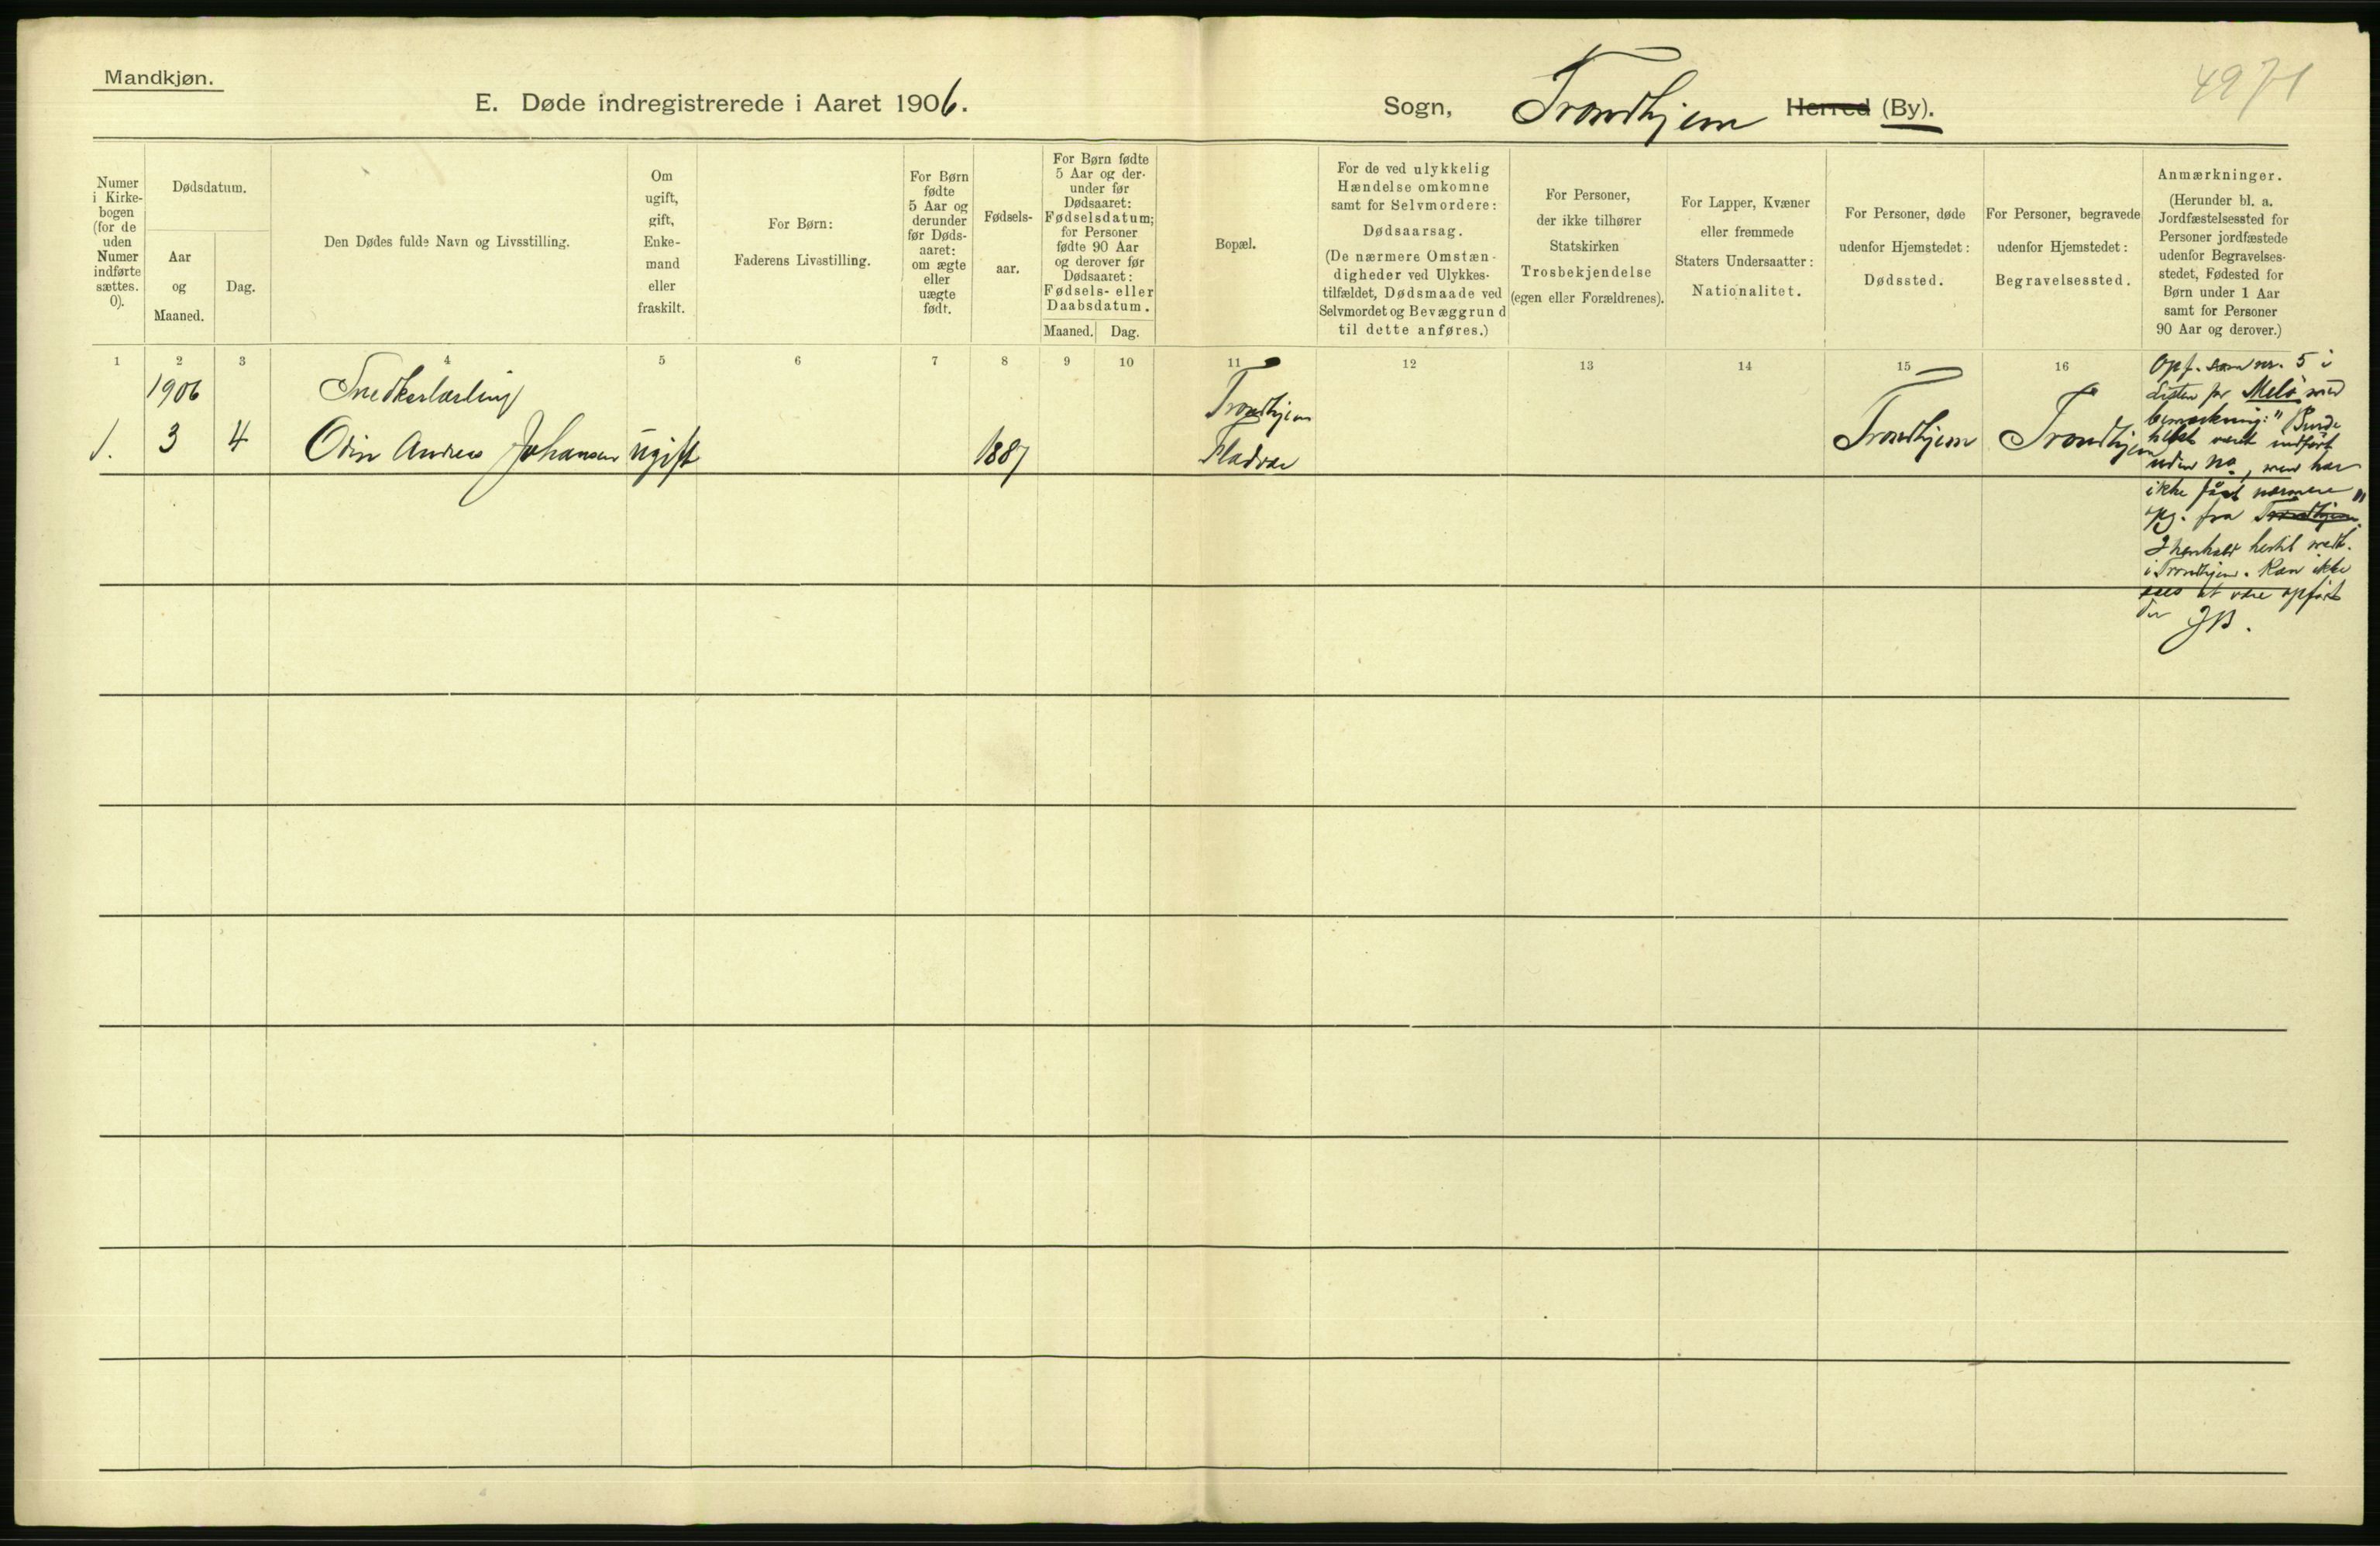 Mandkjøn.
4971
E. Døde indregistrerede i Aaret 1906.
Sogn, Trondhjem Herred (By).
Numer
i Kirke-
bogen
(for de
uden
Numer
indførte
sættes.
0).
Dødsdatum.
Aar
og
Maaned.
Dag.
Den Dødes fulde Navn og Livsstilling.
Om
ugift,
gift,
Enke-
mand
eller
fraskilt.
For Børn:
Faderens Livsstilling.
For Børn
fødte
5 Aar og
derunder
før Døds-
aaret:
om ægte
eller
uægte
født.
Fødsels-
aar.
For Børn fødte
5 Aar og der-
under før
Dødsaaret:
Fødselsdatum;
for Personer
fødte 90 Aar
og derover før
Dødsaaret:
Fødsels- eller
Daabsdatum.
Maaned. Dag.
Bopæl.
For de ved ulykkelig
Hændelse omkomne
samt for Selvmordere:
Dødsaarsag.
(De nærmere Omstæn-
digheder ved Ulykkes-
tilfældet, Dødsmaade ved
Selvmordet og Bevæggrund
til dette anføres.)
For Personer,
der ikke tilhører
Statskirken
Trosbekjendelse
(egen eller Forældrenes).
For Lapper, Kvæner
eller fremmede
Staters Undersaatter:
Nationalitet.
For Personer, døde
udenfor Hjemstedet:
Dødssted.
For Personer, begravede
udenfor Hjemstedet:
Begravelsessted.
Anmærkninger.
(Herunder bl. a.
Jordfæstelsessted for
Personer jordfæstede
udenfor Begravelses-
stedet, Fødested for
Børn under 1 Aar
samt for Personer
90 Aar og derover.)
1 2 3 4 5 6 7 8 9 10 11 12 13 14 15 16
1906 Snedkerlærling Trondhjem
1. 3 4 Odin Andreas Johansen ugift 1887 Fladvær Trondhjem Trondhjem
Opf. som nr. 5 i
Listen for Melø med
bemerkning: "Burde
vært indført
uden No, men har
ikke fået nærmere
opg. fra Trondhjem."
I henhold hertil medt.
i Trondhjem. Kan ikke
sees at være opført
der JB.